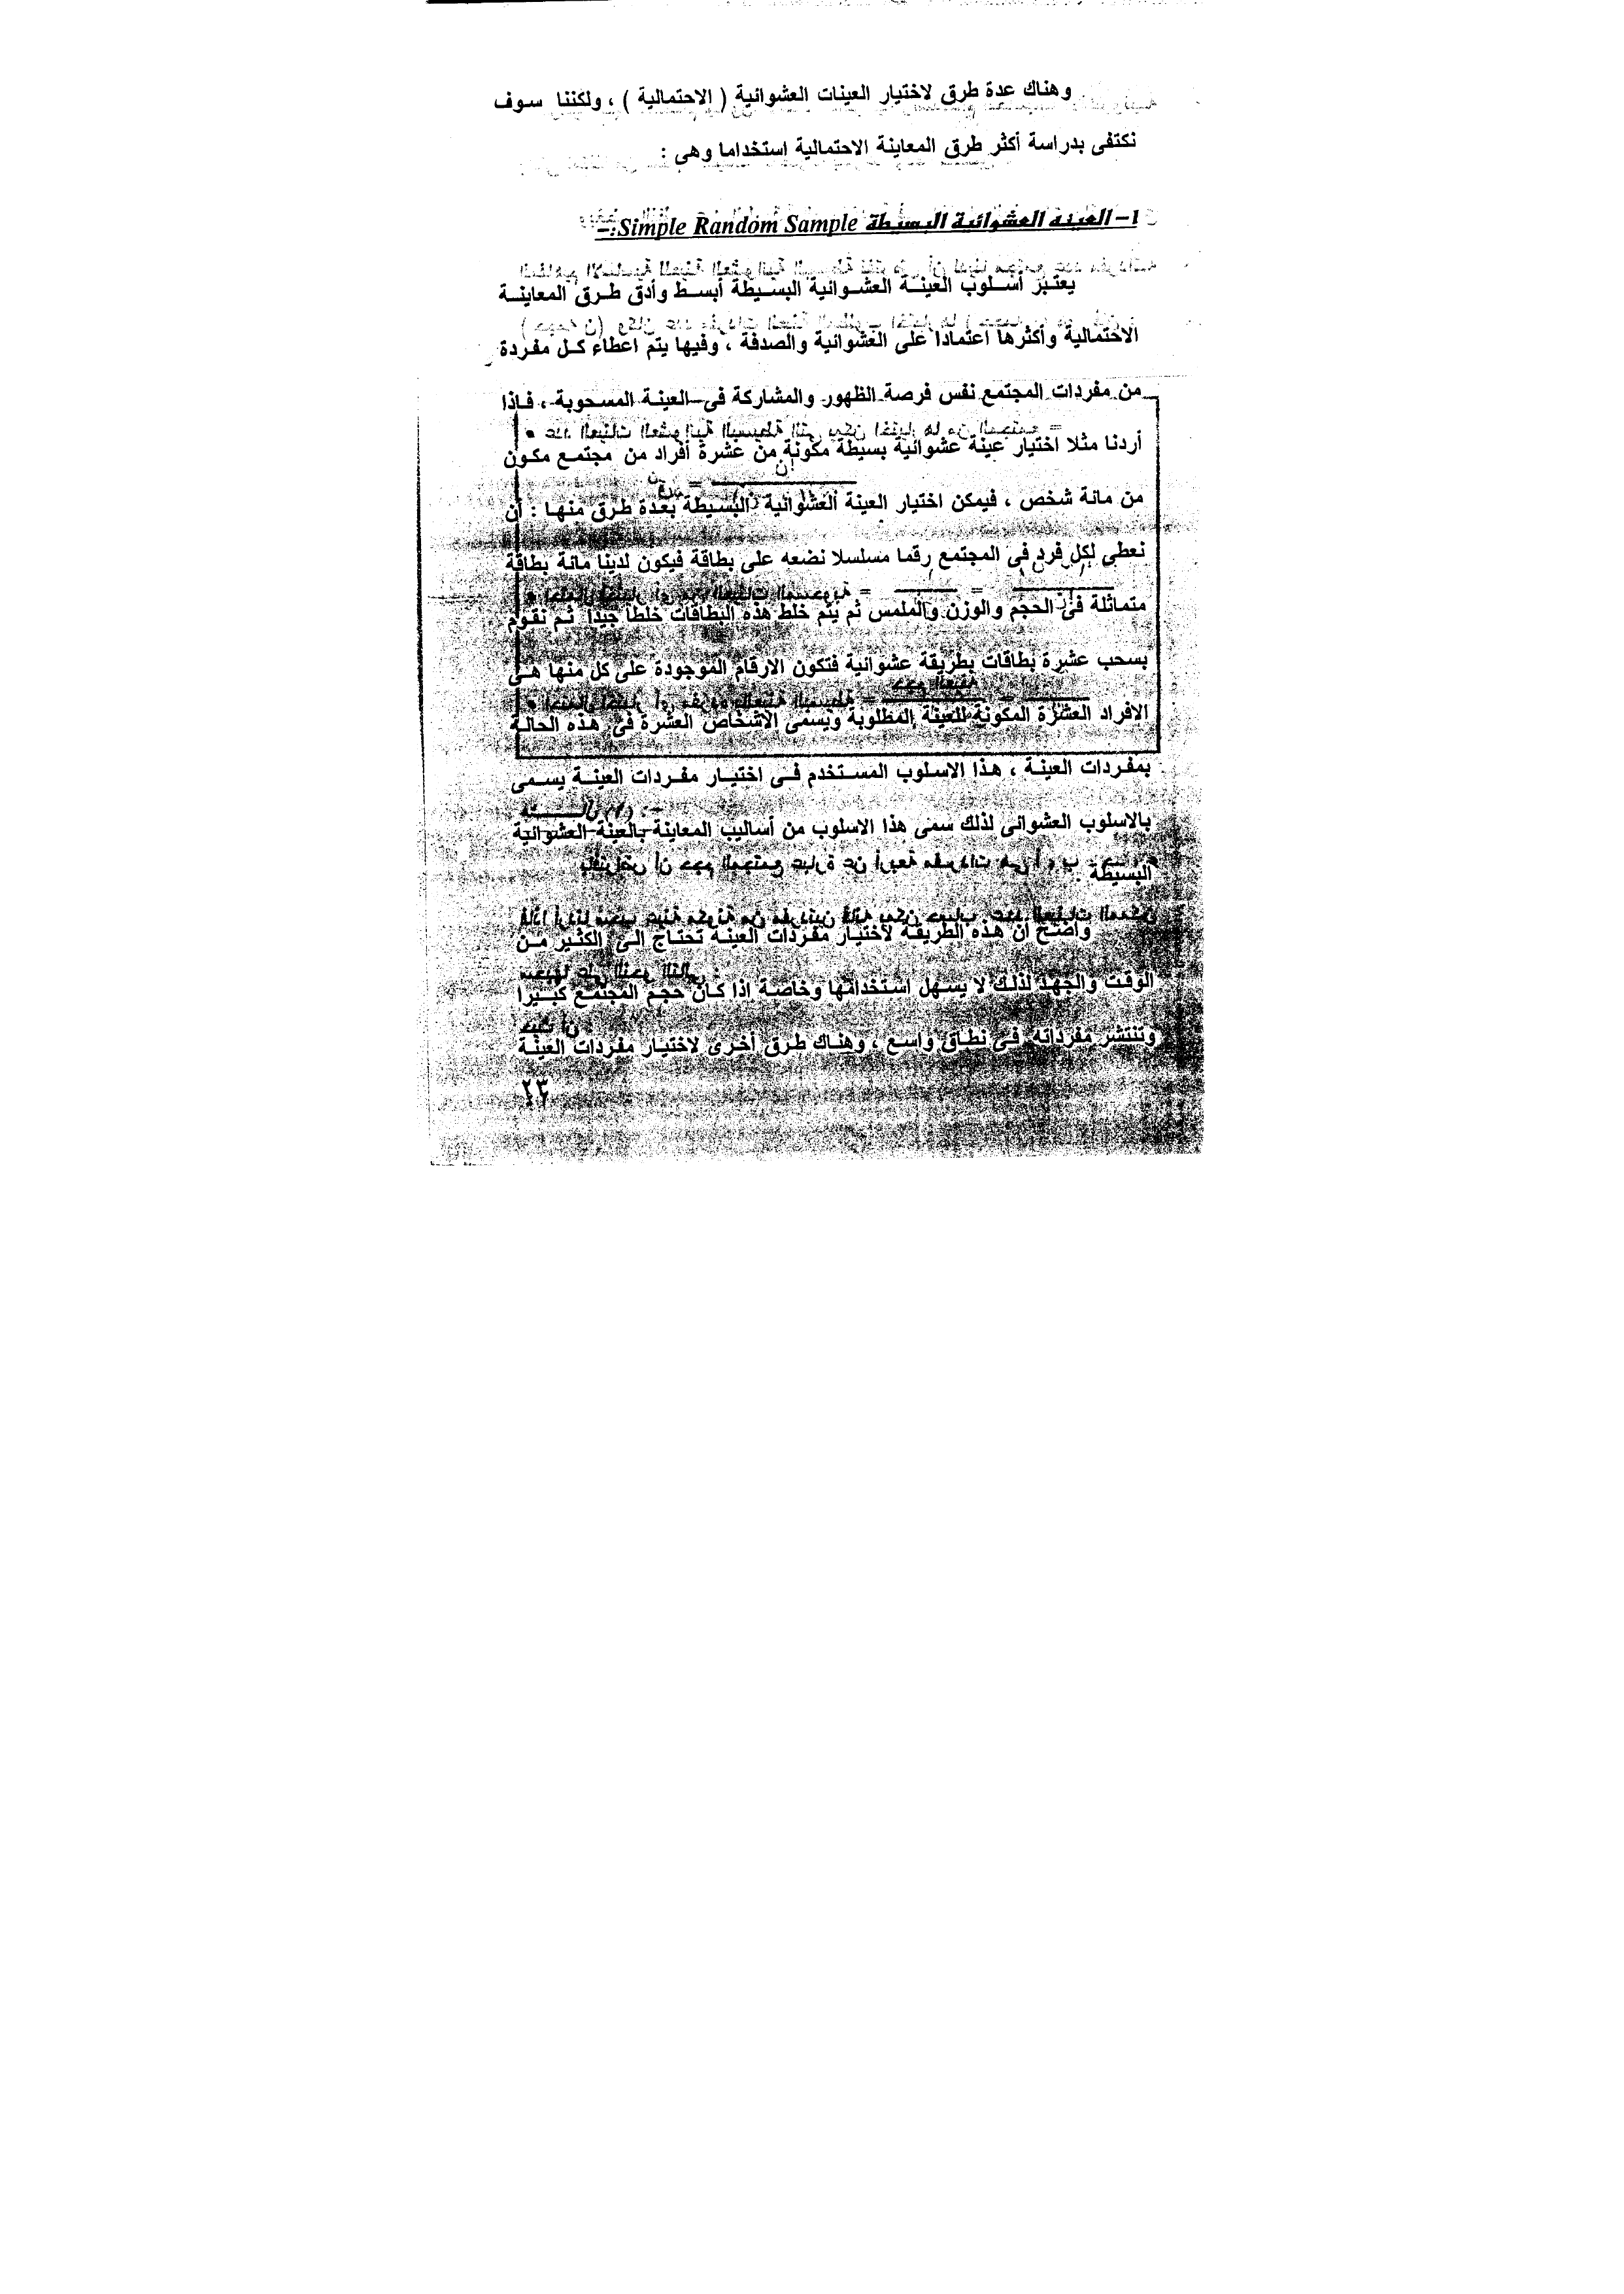 وهناك عدة طرق لاختيار العينات العشوائية ( الاحتمالية ) ، ولكننا سوف
نكتفى بدراسة أكثر طرق المعاينة الاحتمالية استخداما وهى :
١- العينه العشوائية البسيطة Simple Random Sample:-
يعتبر أسلوب العينة العشوائية البسيطة أبسط وأدق طرق المعاينة
الاحتمالية وأكثرها اعتمادا على العشوائية والصدفة ، وفيها يتم اعطاء كل مفردة
من مفردات المجتمع نفس فرصة الظهور والمشاركة فى العينة المسحوبة ، فاذا
أردنا مثلا اختيار عينة عشوائية بسيطة مكونة من عشرة أفراد من مجتمع مكون
من مائة شخص ، فيمكن اختيار العينة العشوائية البسيطة بعدة طرق منها : أن
نعطى لكل فرد فى المجتمع رقما مسلسلا نضعه على بطاقة فيكون لدينا مائة بطاقة
متماثلة فى الحجم والوزن والملمس ثم يتم خلط هذه البطاقات خلطا جيدا ثم نقوم
بسحب عشرة بطاقات بطريقة عشوائية فتكون الارقام الموجودة على كل منها هى
الافراد العشرة المكونة للعينة المطلوبة ويسمى الاشخاص العشرة فى هذه الحالة
بمفردات العينة ، هذا الاسلوب المستخدم فى اختيار مفردات العينة يسمى
بالاسلوب العشوائى لذلك سمى هذا الاسلوب من أساليب المعاينة بالعينة العشوائية
البسيطة .
واضح ان هذه الطريقة لاختيار مفردات العينة تحتاج الى الكثير من
الوقت والجهد لذلك لا يسهل استخدامها وخاصة اذا كان حجم المجتمع كبيرا
وتنتشر مفرداته فى نطاق واسع ، وهناك طرق أخرى لاختيار مفردات العينة
٢٣